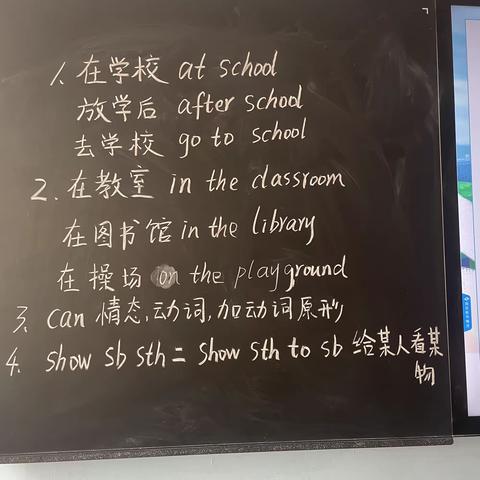 1、在学校 at school
放学后 after school
去学校 go to school
2. 在教室 in the classroom
在图书馆 in the library
在操场 on the playground
3、can 情态、动词，加动词原形
4. show sb sth = show sth to sb 给某人看某
物